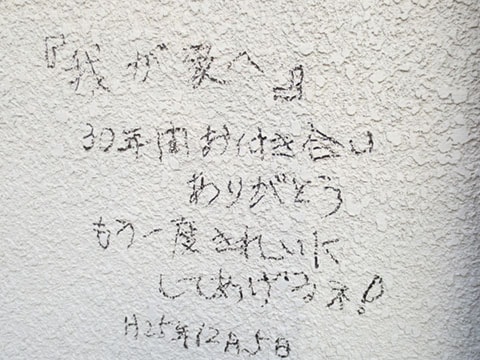 『我が家へ』
30年間お付き合い
ありがとう
もう一度きれいに
してあげるネ!
H25年12月5日